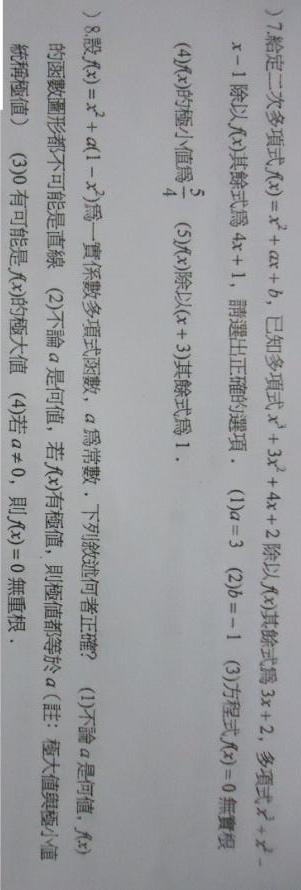 ) 7.給定二次多項式f(x) = x² + ax + b，已知多項式 x³ + 3x² + 4x + 2 除以 f(x)其餘式為 3x + 2，多項式 x³ + x² −
x − 1 除以 f(x)其餘式為 4x + 1，請選出正確的選項． (1)a = 3 (2)b = − 1 (3)方程式 f(x) = 0 無實根
(4)f(x)的極小值為 5/4 (5)f(x)除以(x + 3)其餘式為 1．
) 8.設f(x) = x² + a(1 − x²)為一實係數多項式函數，a 為常數．下列敘述何者正確? (1)不論 a 是何值，f(x)
的函數圖形都不可能是直線 (2)不論 a 是何值，若 f(x)有極值，則極值都等於 a（註：極大值與極小值
統稱極值） (3)0 有可能是 f(x)的極大值 (4)若 a ≠ 0，則 f(x) = 0 無重根．